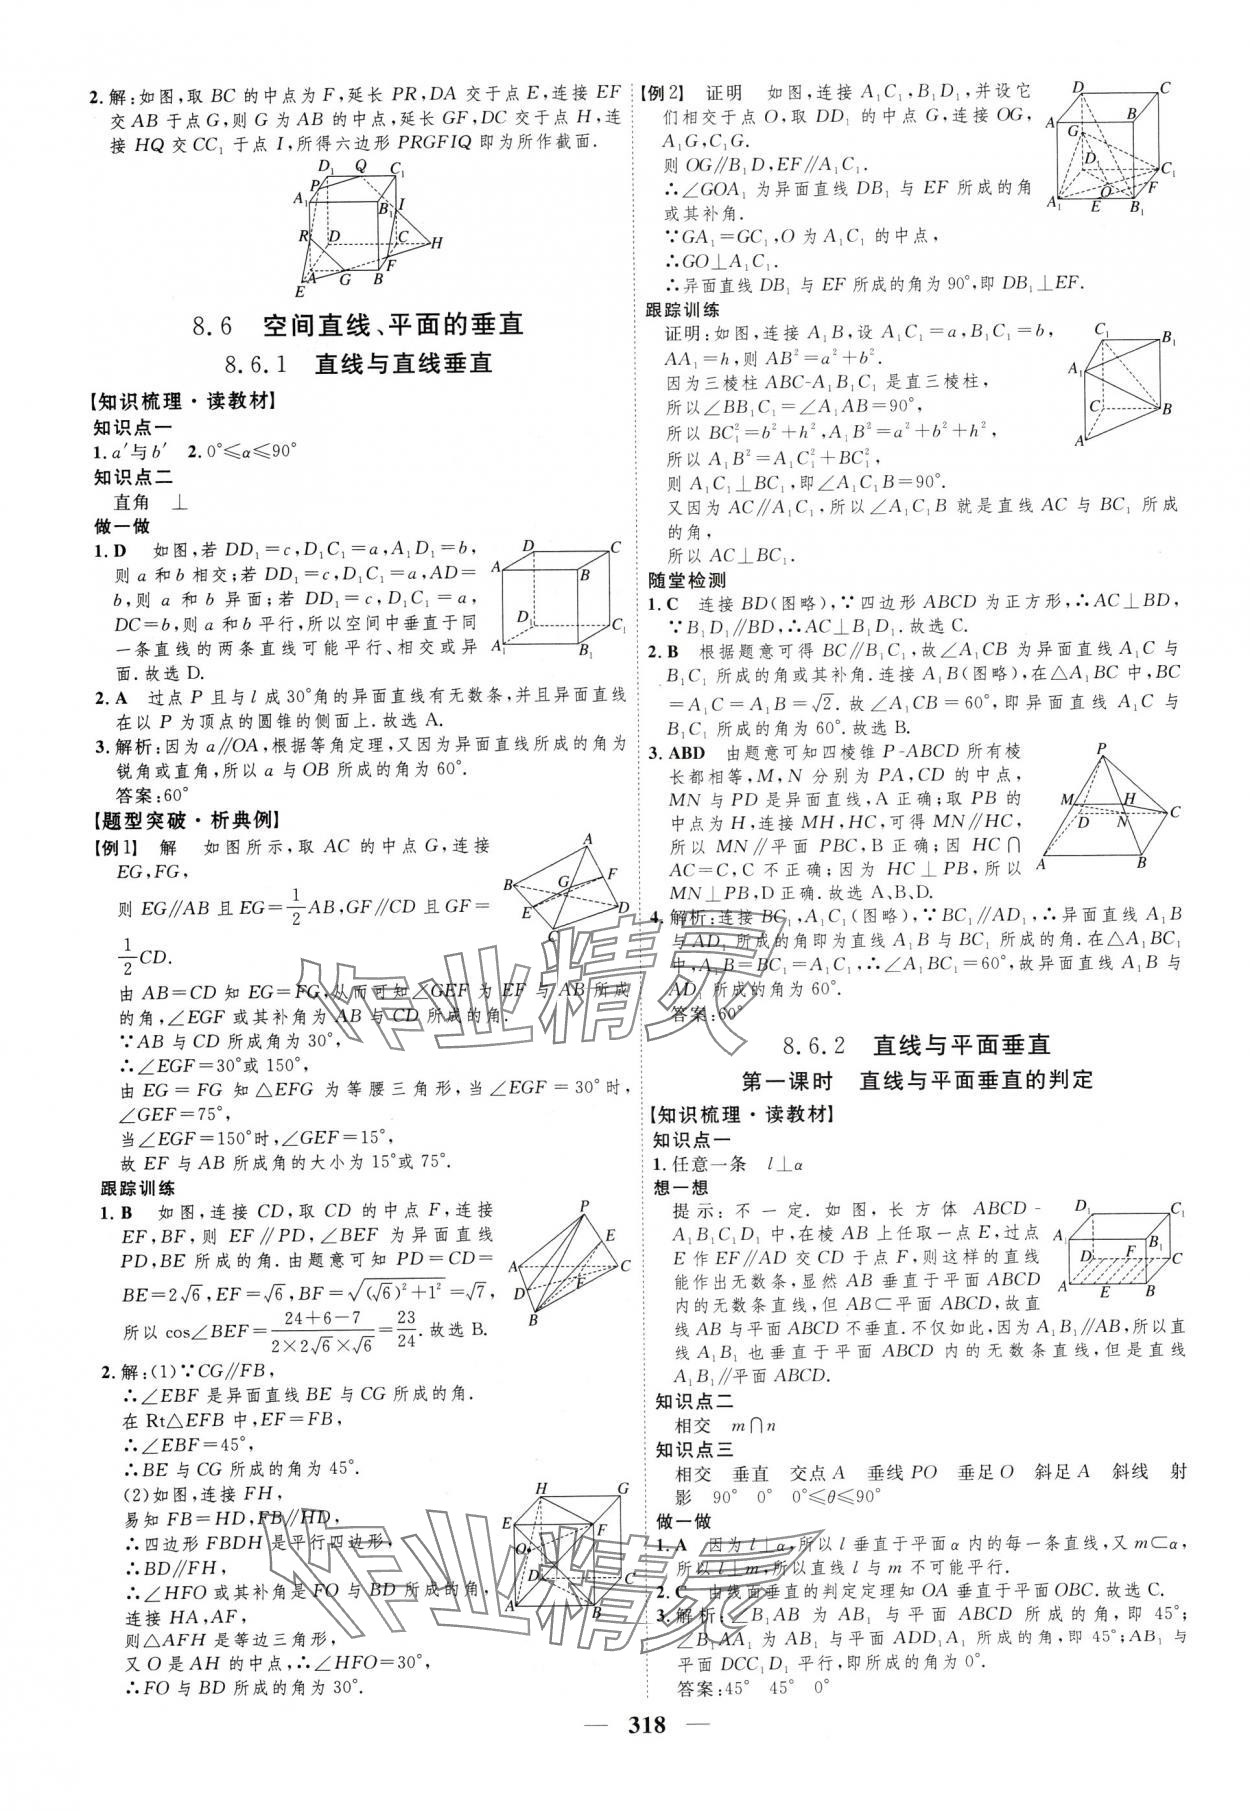 2. 解:如图,取 BC 的中点为 F,延长 PR,DA 交于点 E,连接 EF
交 AB 于点 G,则 G 为 AB 的中点,延长 GF,DC 交于点 H,连
接 HQ 交 CC₁ 于点 I,所得六边形 PRGFIQ 即为所作截面.
8.6 空间直线、平面的垂直
8.6.1 直线与直线垂直
【知识梳理·读教材】
知识点一
1. a′与b′ 2. 0°≤α≤90°
知识点二
直角 ⊥
做一做
1. D 如图,若 DD₁=c,D₁C₁=a,A₁D₁=b,
则 a 和 b 相交;若 DD₁=c,D₁C₁=a,AD=
b,则 a 和 b 异面;若 DD₁=c,D₁C₁=a,
DC=b,则 a 和 b 平行,所以空间中垂直于同
一条直线的两条直线可能平行、相交或异
面.故选 D.
2. A 过点 P 且与 l 成 30°角的异面直线有无数条,并且异面直线
在以 P 为顶点的圆锥的侧面上.故选 A.
3. 解析:因为 a∥OA,根据等角定理,又因为异面直线所成的角为
锐角或直角,所以 a 与 OB 所成的角为 60°.
答案:60°
【题型突破·析典例】
【例1】 解 如图所示,取 AC 的中点 G,连接
EG,FG,
则 EG∥AB 且 EG=1/2 AB,GF∥CD 且 GF=
1/2 CD.
由 AB=CD 知 EG=FG,从而可知∠GEF 为 EF 与 AB 所成
的角,∠EGF 或其补角为 AB 与 CD 所成的角.
∵AB 与 CD 所成角为 30°,
∴∠EGF=30°或 150°,
由 EG=FG 知△EFG 为等腰三角形,当∠EGF=30°时,
∠GEF=75°,
当∠EGF=150°时,∠GEF=15°,
故 EF 与 AB 所成角的大小为 15°或 75°.
跟踪训练
1. B 如图,连接 CD,取 CD 的中点 F,连接
EF,BF,则 EF∥PD,∠BEF 为异面直线
PD,BE 所成的角.由题意可知 PD=CD=
BE=2√6,EF=√6,BF=√((√6)²+1²)=√7,
所以 cos∠BEF=(24+6-7)/(2×2√6×√6)=23/24.故选 B.
2. 解:(1)∵CG∥FB,
∴∠EBF 是异面直线 BE 与 CG 所成的角.
在 Rt△EFB 中,EF=FB,
∴∠EBF=45°,
∴BE 与 CG 所成的角为 45°.
(2)如图,连接 FH,
易知 FB=HD,FB∥HD,
∴四边形 FBDH 是平行四边形,
∴BD∥FH,
∴∠HFO 或其补角是 FO 与 BD 所成的角,
连接 HA,AF,
则△AFH 是等边三角形,
又 O 是 AH 的中点,∴∠HFO=30°,
∴FO 与 BD 所成的角为 30°.
【例2】 证明 如图,连接 A₁C₁,B₁D₁,并设它
们相交于点 O,取 DD₁ 的中点 G,连接 OG,
A₁G,C₁G.
则 OG∥B₁D,EF∥A₁C₁.
∴∠GOA₁ 为异面直线 DB₁ 与 EF 所成的角
或其补角.
∵GA₁=GC₁,O 为 A₁C₁ 的中点,
∴GO⊥A₁C₁.
∴异面直线 DB₁ 与 EF 所成的角为 90°,即 DB₁⊥EF.
跟踪训练
证明:如图,连接 A₁B,设 A₁C₁=a,B₁C₁=b,
AA₁=h,则 AB²=a²+b².
因为三棱柱 ABC-A₁B₁C₁ 是直三棱柱,
所以∠BB₁C₁=∠A₁AB=90°,
所以 BC₁²=b²+h²,A₁B²=a²+b²+h²,
所以 A₁B²=A₁C₁²+BC₁²,
则 A₁C₁⊥BC₁,即∠A₁C₁B=90°.
又因为 AC∥A₁C₁,所以∠A₁C₁B 就是直线 AC 与 BC₁ 所成
的角,
所以 AC⊥BC₁.
随堂检测
1. C 连接 BD(图略),∵四边形 ABCD 为正方形,∴AC⊥BD,
∵B₁D₁∥BD,∴AC⊥B₁D₁.故选 C.
2. B 根据题意可得 BC∥B₁C₁,故∠A₁CB 为异面直线 A₁C 与
B₁C₁ 所成的角或其补角.连接 A₁B(图略),在△A₁BC 中,BC
=A₁C=A₁B=√2.故∠A₁CB=60°,即异面直线 A₁C 与
B₁C₁ 所成的角为 60°.故选 B.
3. ABD 由题意可知四棱锥 P-ABCD 所有棱
长都相等,M,N 分别为 PA,CD 的中点,
MN 与 PD 是异面直线,A 正确;取 PB 的
中点为 H,连接 MH,HC,可得 MN∥HC,
所以 MN∥平面 PBC,B 正确;因 HC∩
AC=C,C 不正确;因为 HC⊥PB,所以
MN⊥PB,D 正确.故选 A、B、D.
4. 解析:连接 BC₁,A₁C₁(图略),∵BC₁∥AD₁,∴异面直线 A₁B
与 AD₁ 所成的角即为直线 A₁B 与 BC₁ 所成的角.在△A₁BC₁
中,A₁B=BC₁=A₁C₁,∴∠A₁BC₁=60°,故异面直线 A₁B 与
AD₁ 所成的角为 60°.
答案:60°
8.6.2 直线与平面垂直
第一课时 直线与平面垂直的判定
【知识梳理·读教材】
知识点一
1. 任意一条 l⊥α
想一想
提示:不一定.如图,长方体 ABCD-
A₁B₁C₁D₁ 中,在棱 AB 上任取一点 E,过点
E 作 EF∥AD 交 CD 于点 F,则这样的直线
能作出无数条,显然 AB 垂直于平面 ABCD
内的无数条直线,但 AB⊂平面 ABCD,故直
线 AB 与平面 ABCD 不垂直.不仅如此,因为 A₁B₁∥AB,所以直
线 A₁B₁ 也垂直于平面 ABCD 内的无数条直线,但是直线
A₁B₁∥平面 ABCD.
知识点二
相交 m∩n
知识点三
相交 垂直 交点 A 垂线 PO 垂足 O 斜足 A 斜线 射
影 90° 0° 0°≤θ≤90°
做一做
1. A 因为 l⊥α,所以 l 垂直于平面 α 内的每一条直线,又 m⊂α,
所以 l⊥m,所以直线 l 与 m 不可能平行.
2. C 由线面垂直的判定定理知 OA 垂直于平面 OBC.故选 C.
3. 解析:∠B₁AB 为 AB₁ 与平面 ABCD 所成的角,即 45°;
∠B₁AA₁ 为 AB₁ 与平面 ADD₁A₁ 所成的角,即 45°;AB₁ 与
平面 DCC₁D₁ 平行,即所成的角为 0°.
答案:45° 45° 0°
318
作业精灵
作业精灵